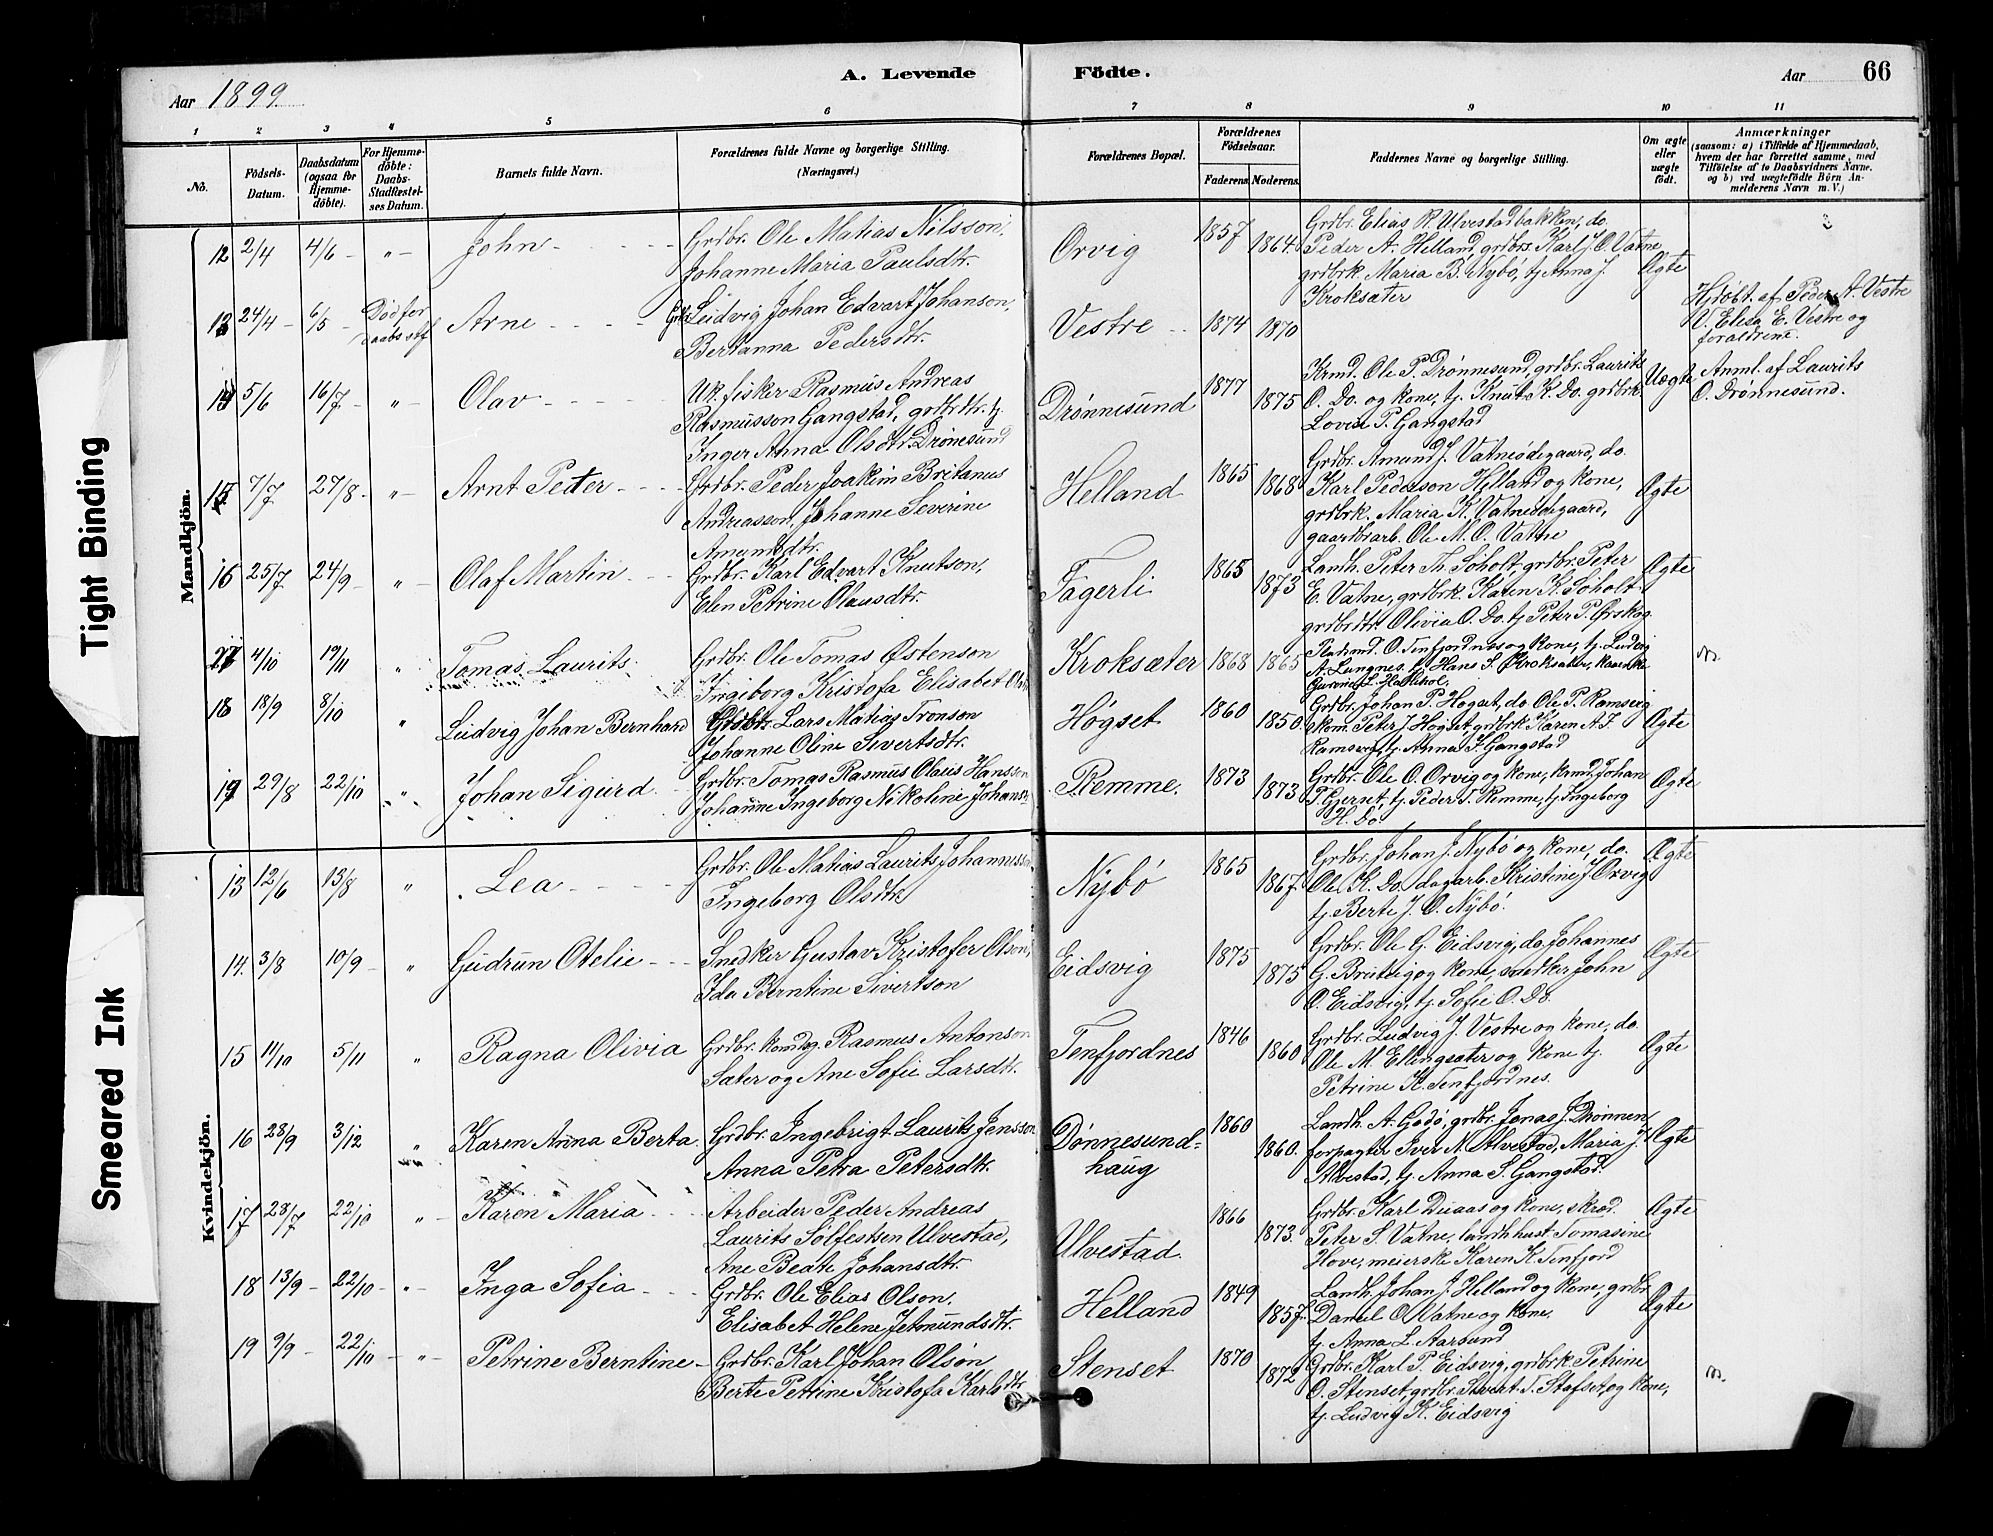 Aar 1899.
A. Levende Födte.
Aar 66
1 2 3 4 5 6 7 8 9 10 11
No.
Födsels-Datum.
Daabsdatum (ogsaa for Hjemme-döbte).
For Hjemme-döbte: Daabs-Stadfæstel-ses Datum.
Barnets fulde Navn.
Forældrenes fulde Navne og borgerlige Stilling. (Næringsvei.)
Forældrenes Bopæl.
Forældrenes Födselsaar.
Faderens. Moderens.
Faddernes Navne og borgerlige Stilling.
Om ægte eller uægte födt.
Anmærkninger
(saasom: a) i Tilfælde af Hjemmedaab,
hvem der har forrettet samme, med
Tilföielse af to Daabsvidners Navne.
og b) ved uægtefödte Börn An-
melderens Navn m. V.)
Mandkjön.
12 2/4 4/6 - " - John - - - - -
Grdbr. Ole Matias Nilsson,
Johanne Maria Paulsdtr.
Orvig 1857 1864.
Grdbr. Elias R. Ulvestadbakken, do.
Peder A. Helland, grdbrs Karl J. O. Vatne
grdbrk. Maria B. Nybö, tj. Anna J.
Kroksæter
Ægte
13 24/4 - 6/5 - Död for daabs stf Arne - - - -
Grdbr. Leidvig Johan Edvart Johanson,
Bertanna Pedersdtr.
Vestre - - 1874 1870
Hjdöbt. af Peder A. Vestre
V. Elisa E. Vestre og
forældrene.
14 5/6 16/7 - " - Olav - - - -
Uk. fisker Rasmus Andreas
Rasmusson Gangstad, grdbrdtr. tj.
Inger Anna Olsdtr. Drönesund
Drönnesund 1877 1875
Krmd. Ole P. Drönnesund, grdbr. Laurits
O. Do. og kone, tj. Knut K. Do. grdbrk.
Lovise P. Gangstad
Uægte
Anml. af Laurits
O. Drönnesund.
15 7/7 27/8 - " - Arnt Peter - - -
Grdbr. Peder Joakim Britanus
Andreasson, Johanne Severine
Amundsdtr.
Helland 1865 1868
Grdbr. Amund J. Vatneödegaard, do.
Karl Pederson Helland og kone,
grdbrk. Maria K. Vatneödegaard,
gaardbrarb. Ole M. O. Vatne
Ægte
16 25/7 24/9 - " - Olaf Martin - -
Grdbr. Karl Edvart Knutson,
Elen Petrine Olausdtr.
Fagerli 1865 1873
Landh. Peter Th. Söholt, grdbr. Peter
E. Vatne, grdbrk. Karen K. Söholt
grdbrdtr. Olivia O. Do. tj. Peter P. Ørskog
Ægte
17 4/10 19/11 " Tomas Laurits.
Grdbr. Ole Tomas Østenson
Ingeborg Kristofa Elisabet
Kroksæter 1868 1865
O. Tenfjordnes og kone, tj. Ludvig
A. Lungnes, tj. Hans S. Kroksæter,
18 18/9 8/10 " Leidvig Johan Bernhard
Grdbr. Lars Matias Tronson
Johanne Oline Sivertsdtr.
Högset 1860 1850.
Grdbr. Johan P. Högset, do. Ole P. Ramsvig
skom. Peter J. Högset, grdbrk. Karen A. J.
Ramsvig, tj. Anna S. Gangstad
Ægte
19 29/8 22/10 " Johan Sigurd. -
Grdbr. Tomas Rasmus Olaus Hansson
Johanne Ingeborg Nikoline Johans
Remme. 1873 1873
Grdbr. Ole O. Orvig og kone, krmd. Johan
P. Gjerset, tj. Peder T. Remme, tj. Ingeborg
H. Bö
Ægte
Kvindekjön.
13 12/6 13/8 " Lea - - - -
Grdbr. Ole Matias Laurits Johannesson
Ingeborg Olsdtr.
Nybö 1865 1867.
Grdbr. Johan J. Nybö og kone, do.
Ole K. Do. dagarb. Kristine J. Orvig
tj. Berte J. O. Nybö.
Ægte
14. 3/8 10/9 - " Gudrun Otelie - - -
Snedker Gustav Kristofer Olson,
Ida Berntine Sivertson
Eidsvig 1875 1875
Grdbr. Ole G. Eidsvig, do. Johannes
G. og kone, snedker John
O. Eidsvig, tj. Sofie O. Do.
Ægte
15 11/10 5/11 " Ragna Olivia
Grdbr. Rasmus Antonson
Sæter og Ane Sofie Larsdtr.
Tenfjordnes 1846 1860
Grdbr. Ludvig J. Vestre og kone, do.
Ole M. Ellingsæter og kone tj.
Petrine K. Tenfjordnes.
Ægte
16 28/9 3/12 " Karen Anna Berta
Grdbr. Ingebrigt Laurits Jensson
Anna Petra Petersdtr.
Dönnesund-
haug
1860 1860.
Landh. A. Godö, grdbr. Jonas J. Drönnen,
forpagter Iver N. Alvestad, Maria J.
Alvestad, tj. Anna S. Gangstad.
Ægte
17 28/7 22/10 - " - Karen Maria - - -
Arbeider Peder Andreas
Laurits Solfestsen Ulvestad,
Ane Beate Johansdtr.
Ulvestad 1866 1873.
Grdbr. Karl og kone, skræd.
Peter S. Vatne, landhhust. Tomasine
Hove, meierske Karen K. Tenfjord
Ægte
18 13/9 - 22/10 - " - Inga Sofia - - -
Grdbr. Ole Elias Olson.
Elisabet Helene Jetmundsdtr.
Helland 1849 1857.
Landh. Johan J. Helland og kone, grdbr.
Daniel O. Vatne og kone,
tj. Anna L. Aarsund
Ægte
19 9/9 - 22/10 - " - Petrine Berntine -
Grdbr. Karl Johan Olsön
Berte Petrine Kristofa Karlsdtr
Stenset 1870 1872
Grdbr. Karl P. Eidsvig, grdbrk. Petrine
O. Stenset, grdbr. Sivert T. Stafset, og kone,
tj. Ludvig K. Eidsvig
Tight Binding
Smeared Ink